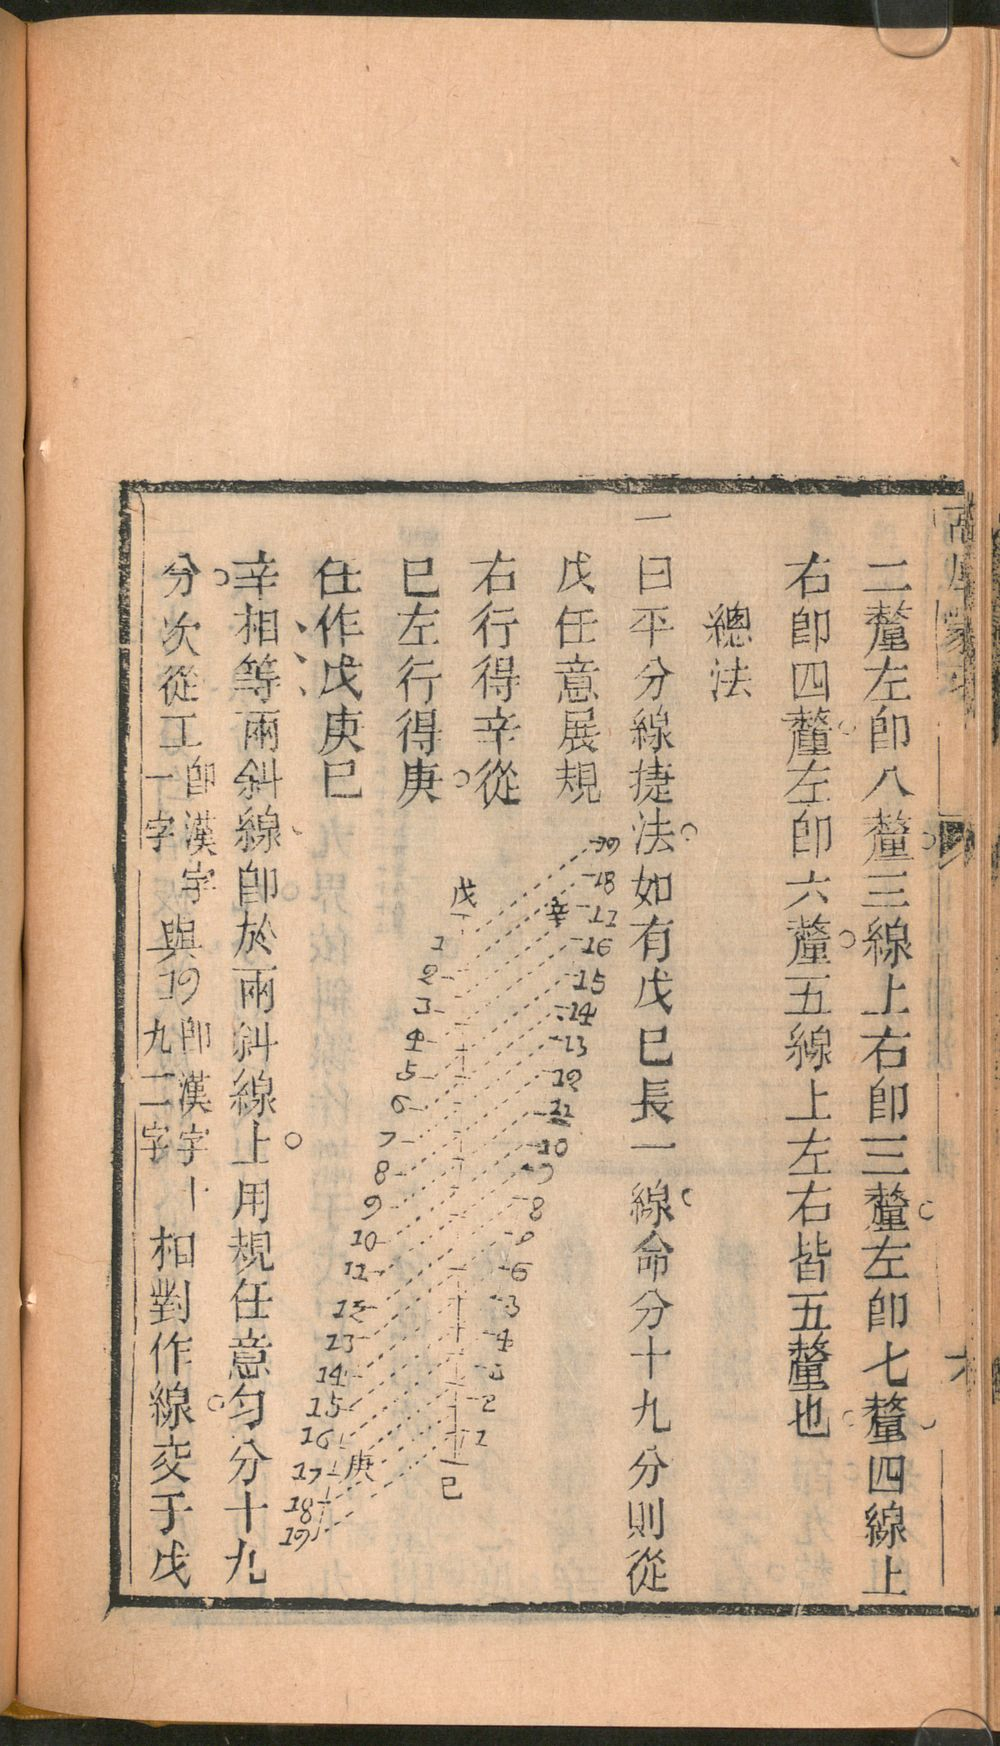 二釐左即八釐三線上右即三釐左即七釐四線上
右即四釐左即六釐五線上左右皆五釐也
總法
一曰平分線捷法如有戊巳長一線命分十九分則從
戊任意展規
右行得辛從
巳左行得庚
任作戊庚巳
辛相等兩斜線即於兩斜線上用規任意勻分十九
分次從工即漢字一字與19即漢字十九二字相對作線交于戊
戊
1
2
3
4
5
6
7
8
9
10
11
12
13
14
15
16
17
18
19
庚
19
18
辛
17
16
15
14
13
12
11
10
9
8
6
4
2
1
巳